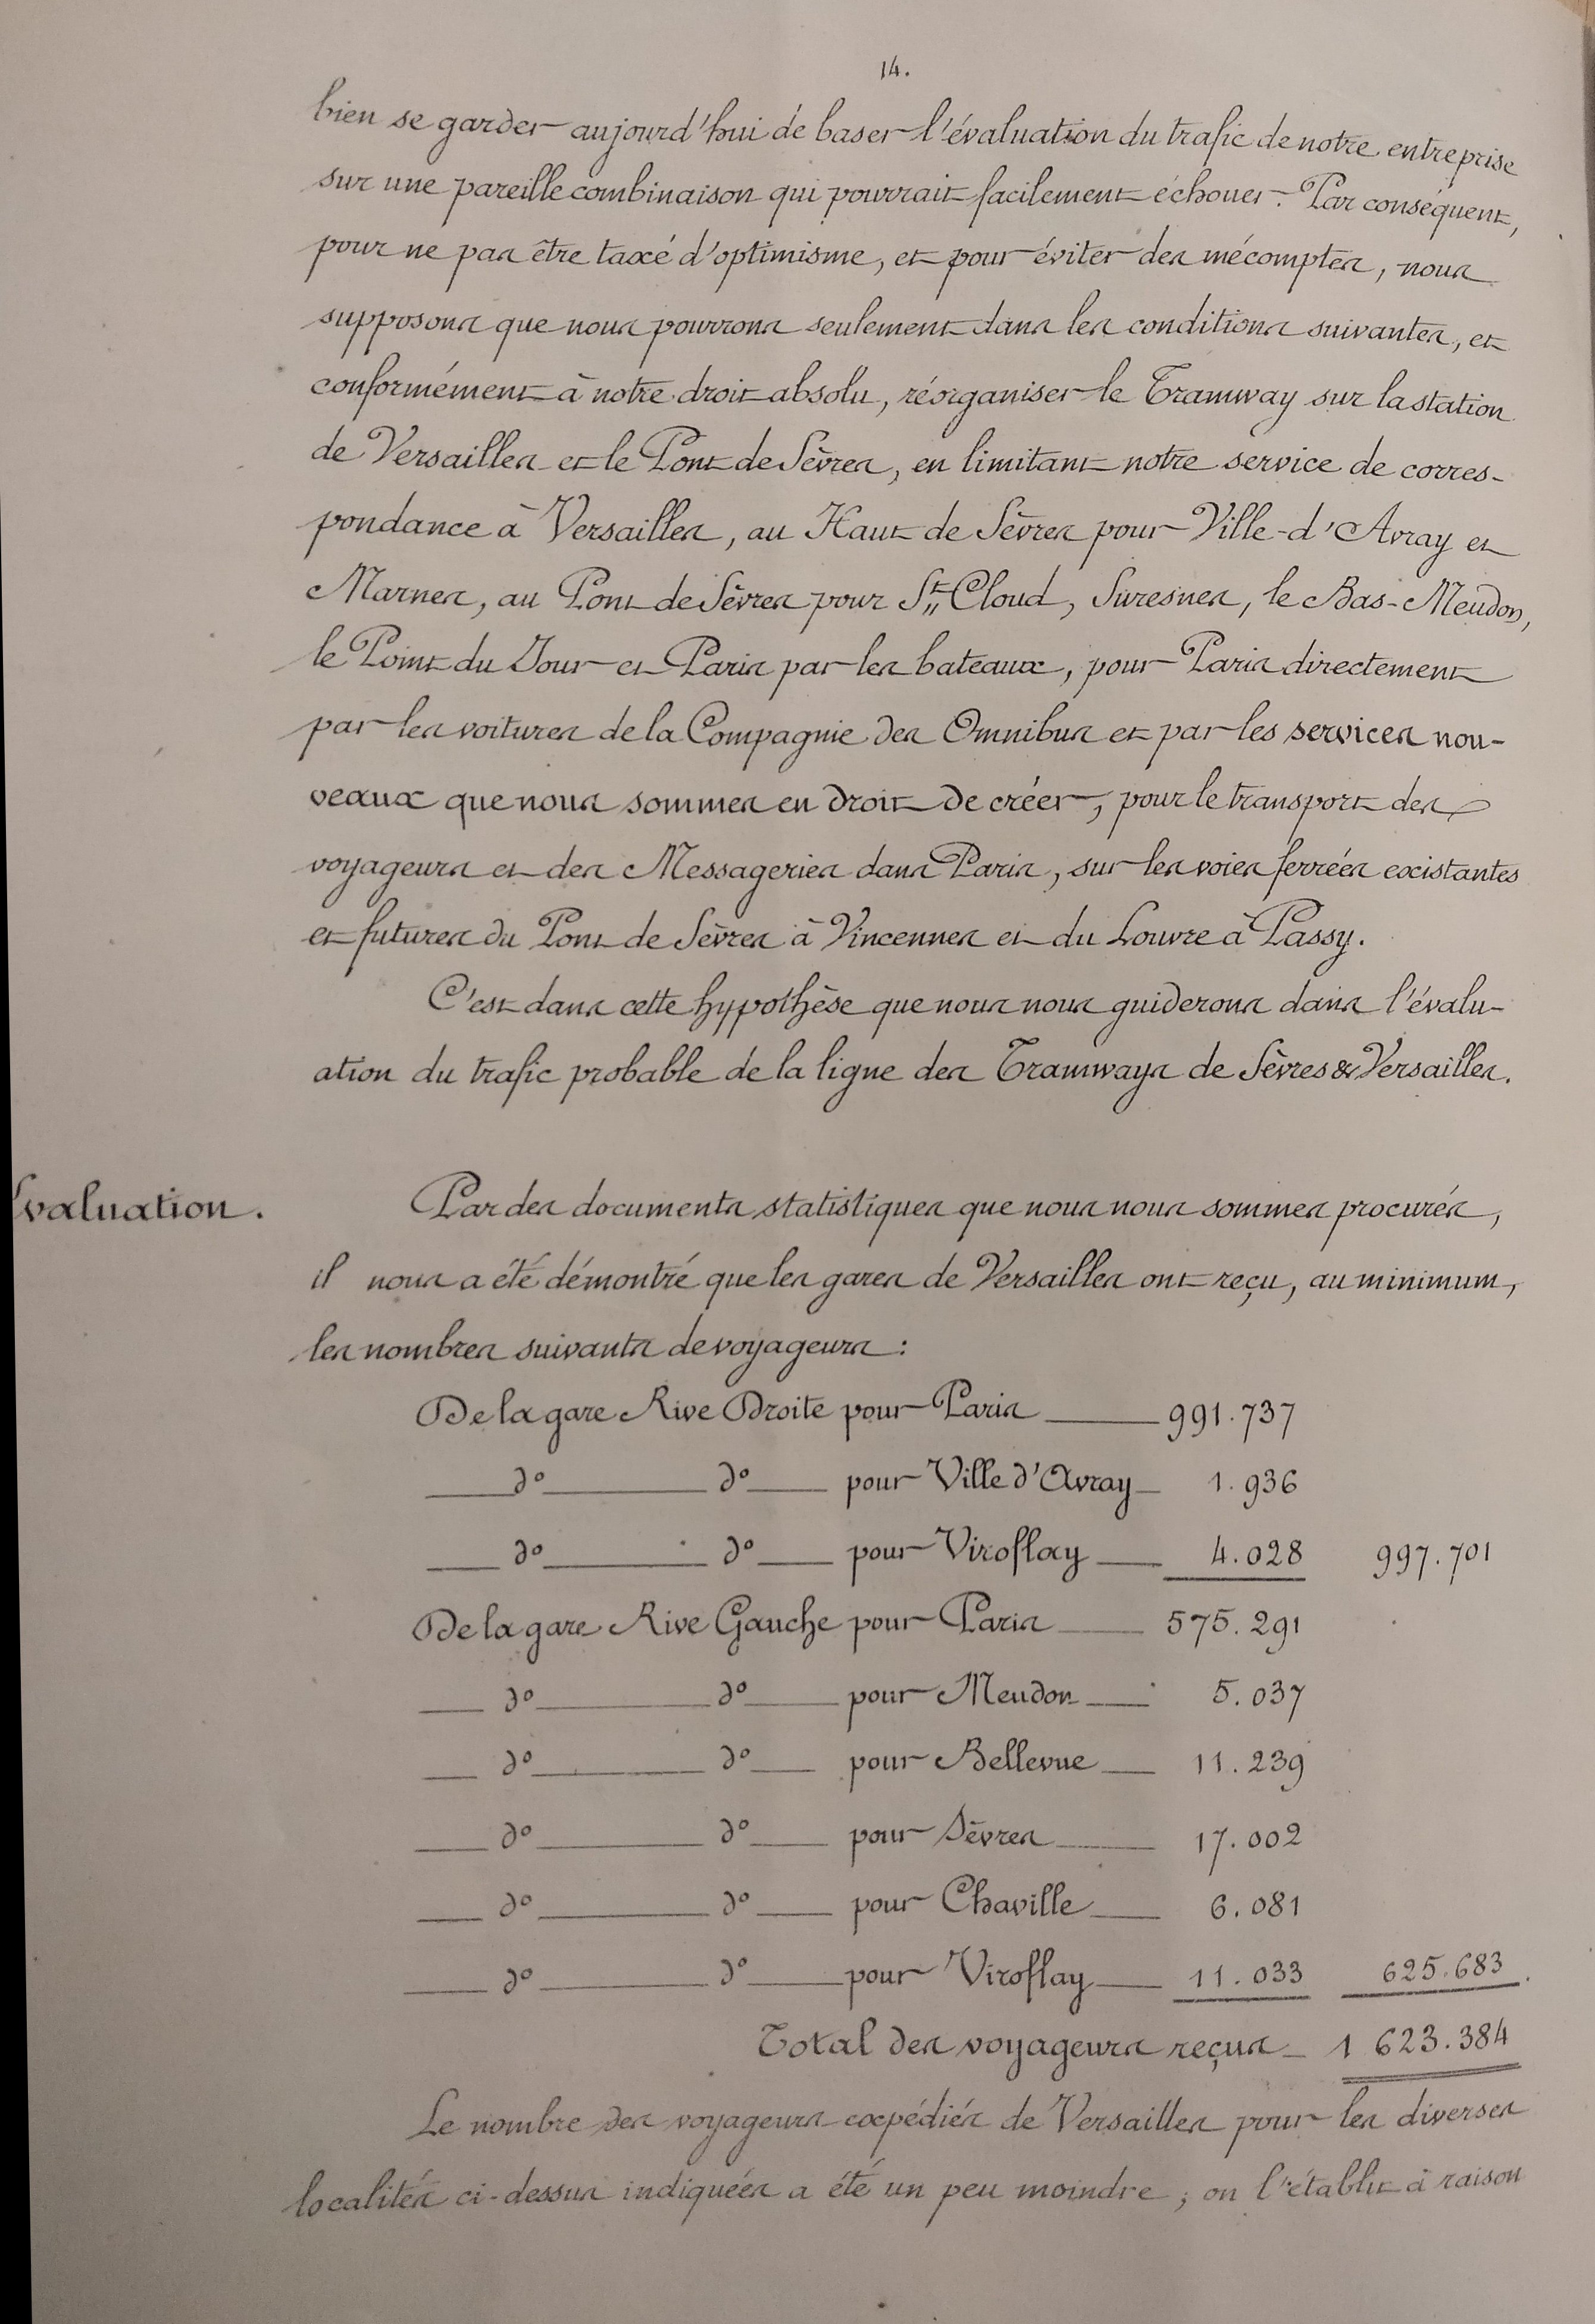 14.
bien se garder aujourd'hui de baser l'évaluation du trafic de notre entreprise
sur une pareille combinaison qui pourrait facilement échouer. Par conséquent,
pour ne pas être taxé d'optimisme, et pour éviter des mécomptes, nous
supposons que nous pourrons seulement dans les conditions suivantes, et
conformément à notre droit absolu, réorganiser le Tramway sur la station
de Versailles et le Pont de Sèvres, en limitant notre service de corres-
pondance à Versailles, au Haut de Sèvres pour Ville-d'Avray et
Marnes, au Pont de Sèvres pour St Cloud, Suresnes, le Bas-Meudon,
le Point du Jour et Paris par les bateaux, pour Paris directement
par les voitures de la Compagnie des Omnibus et par les services nou-
veaux que nous sommes en droit de créer, pour le transport des
voyageurs et des Messageries dans Paris, sur les voies ferrées existantes
et futures du Pont de Sèvres à Vincennes et du Louvre à Passy.
C'est dans cette hypothèse que nous nous guiderons dans l'évalu-
ation du trafic probable de la ligne des Tramways de Sèvres & Versailles.
Evaluation. Par des documents statistiques que nous nous sommes procurés,
il nous a été démontré que les gares de Versailles ont reçu, au minimum,
les nombres suivants de voyageurs :
De la gare Rive Droite pour Paris 991.737
do do pour Ville d'Avray 1.936
do do pour Viroflay 4.028 997.701
De la gare Rive Gauche pour Paris 575.291
do do pour Meudon 5.037
do do pour Bellevue 11.239
do do pour Sèvres 17.002
do do pour Chaville 6.081
do do pour Viroflay 11.033 625.683
Total des voyageurs reçus 1 623.384
Le nombre des voyageurs expédiés de Versailles pour les diverses
localités ci-dessus indiquées a été un peu moindre ; on l'établit à raison